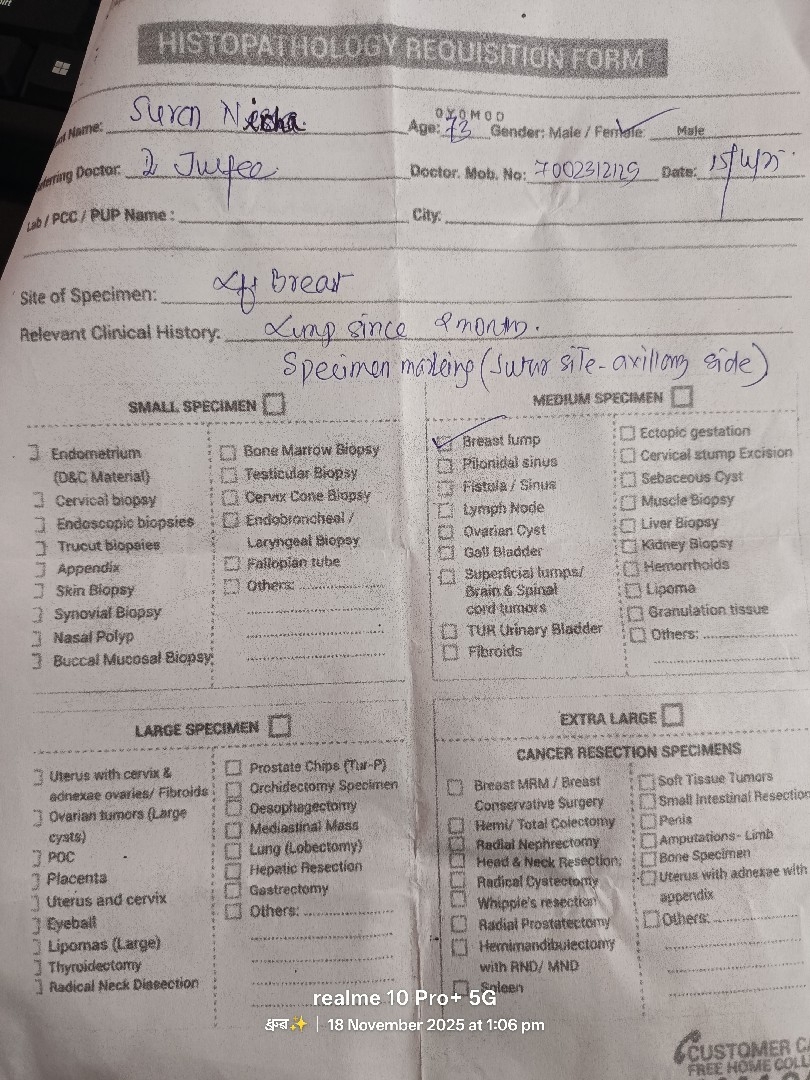 HISTOPATHOLOGY REQUISITION FORM
Name: Suren Nissha Age: 73 DYOMOD Gender: Male / Female: Male
Doctor: Dr Doctor. Mob. No: 7002312129 Date:
Lab / PCC / PUP Name : City:
Site of Specimen: Breast
Relevant Clinical History: Lump since months.
Specimen marking ( site - axillary side)
SMALL SPECIMEN
Endometrium
(D&C Material)
Cervical biopsy
Endoscopic biopsies
Trucut biopsies
Appendix
Skin Biopsy
Synovial Biopsy
Nasal Polyp
Buccal Mucosal Biopsy
Bone Marrow Biopsy
Testicular Biopsy
Cervix Cone Biopsy
Endobroncheal /
Laryngeal Biopsy
Fallopian tube
Others:
MEDIUM SPECIMEN
Breast lump
Pilonidal sinus
Fistula / Sinus
Lymph Node
Ovarian Cyst
Gall Bladder
Superficial lumps/
Brain & Spinal
cord tumors
TUR Urinary Bladder
Fibroids
Ectopic gestation
Cervical stump Excision
Sebaceous Cyst
Muscle Biopsy
Liver Biopsy
Kidney Biopsy
Hemorrhoids
Lipoma
Granulation tissue
Others:
LARGE SPECIMEN
Uterus with cervix &
adnexae ovaries/ Fibroids
Ovarian tumors (Large
cysts)
POC
Placenta
Uterus and cervix
Eyeball
Lipomas (Large)
Thyroidectomy
Radical Neck Dissection
Prostate Chips (Tur-P)
Orchidectomy Specimen
Oesophagectomy
Mediastinal Mass
Lung (Lobectomy)
Hepatic Resection
Gastrectomy
Others:
EXTRA LARGE
CANCER RESECTION SPECIMENS
Breast MRM / Breast
Conservative Surgery
Hemi/ Total Colectomy
Radial Nephrectomy
Head & Neck Resection:
Radical Cystectomy
Whipple's resection
Radial Prostatectomy
Hemimandibulectomy
with RND/ MND
Spleen
Soft Tissue Tumors
Small Intestinal Resection
Penis
Amputations- Limb
Bone Specimen
Uterus with adnexae with
appendix
Others:
realme 10 Pro+ 5G
ध्रुब✨ | 18 November 2025 at 1:06 pm
CUSTOMER
FREE HOME